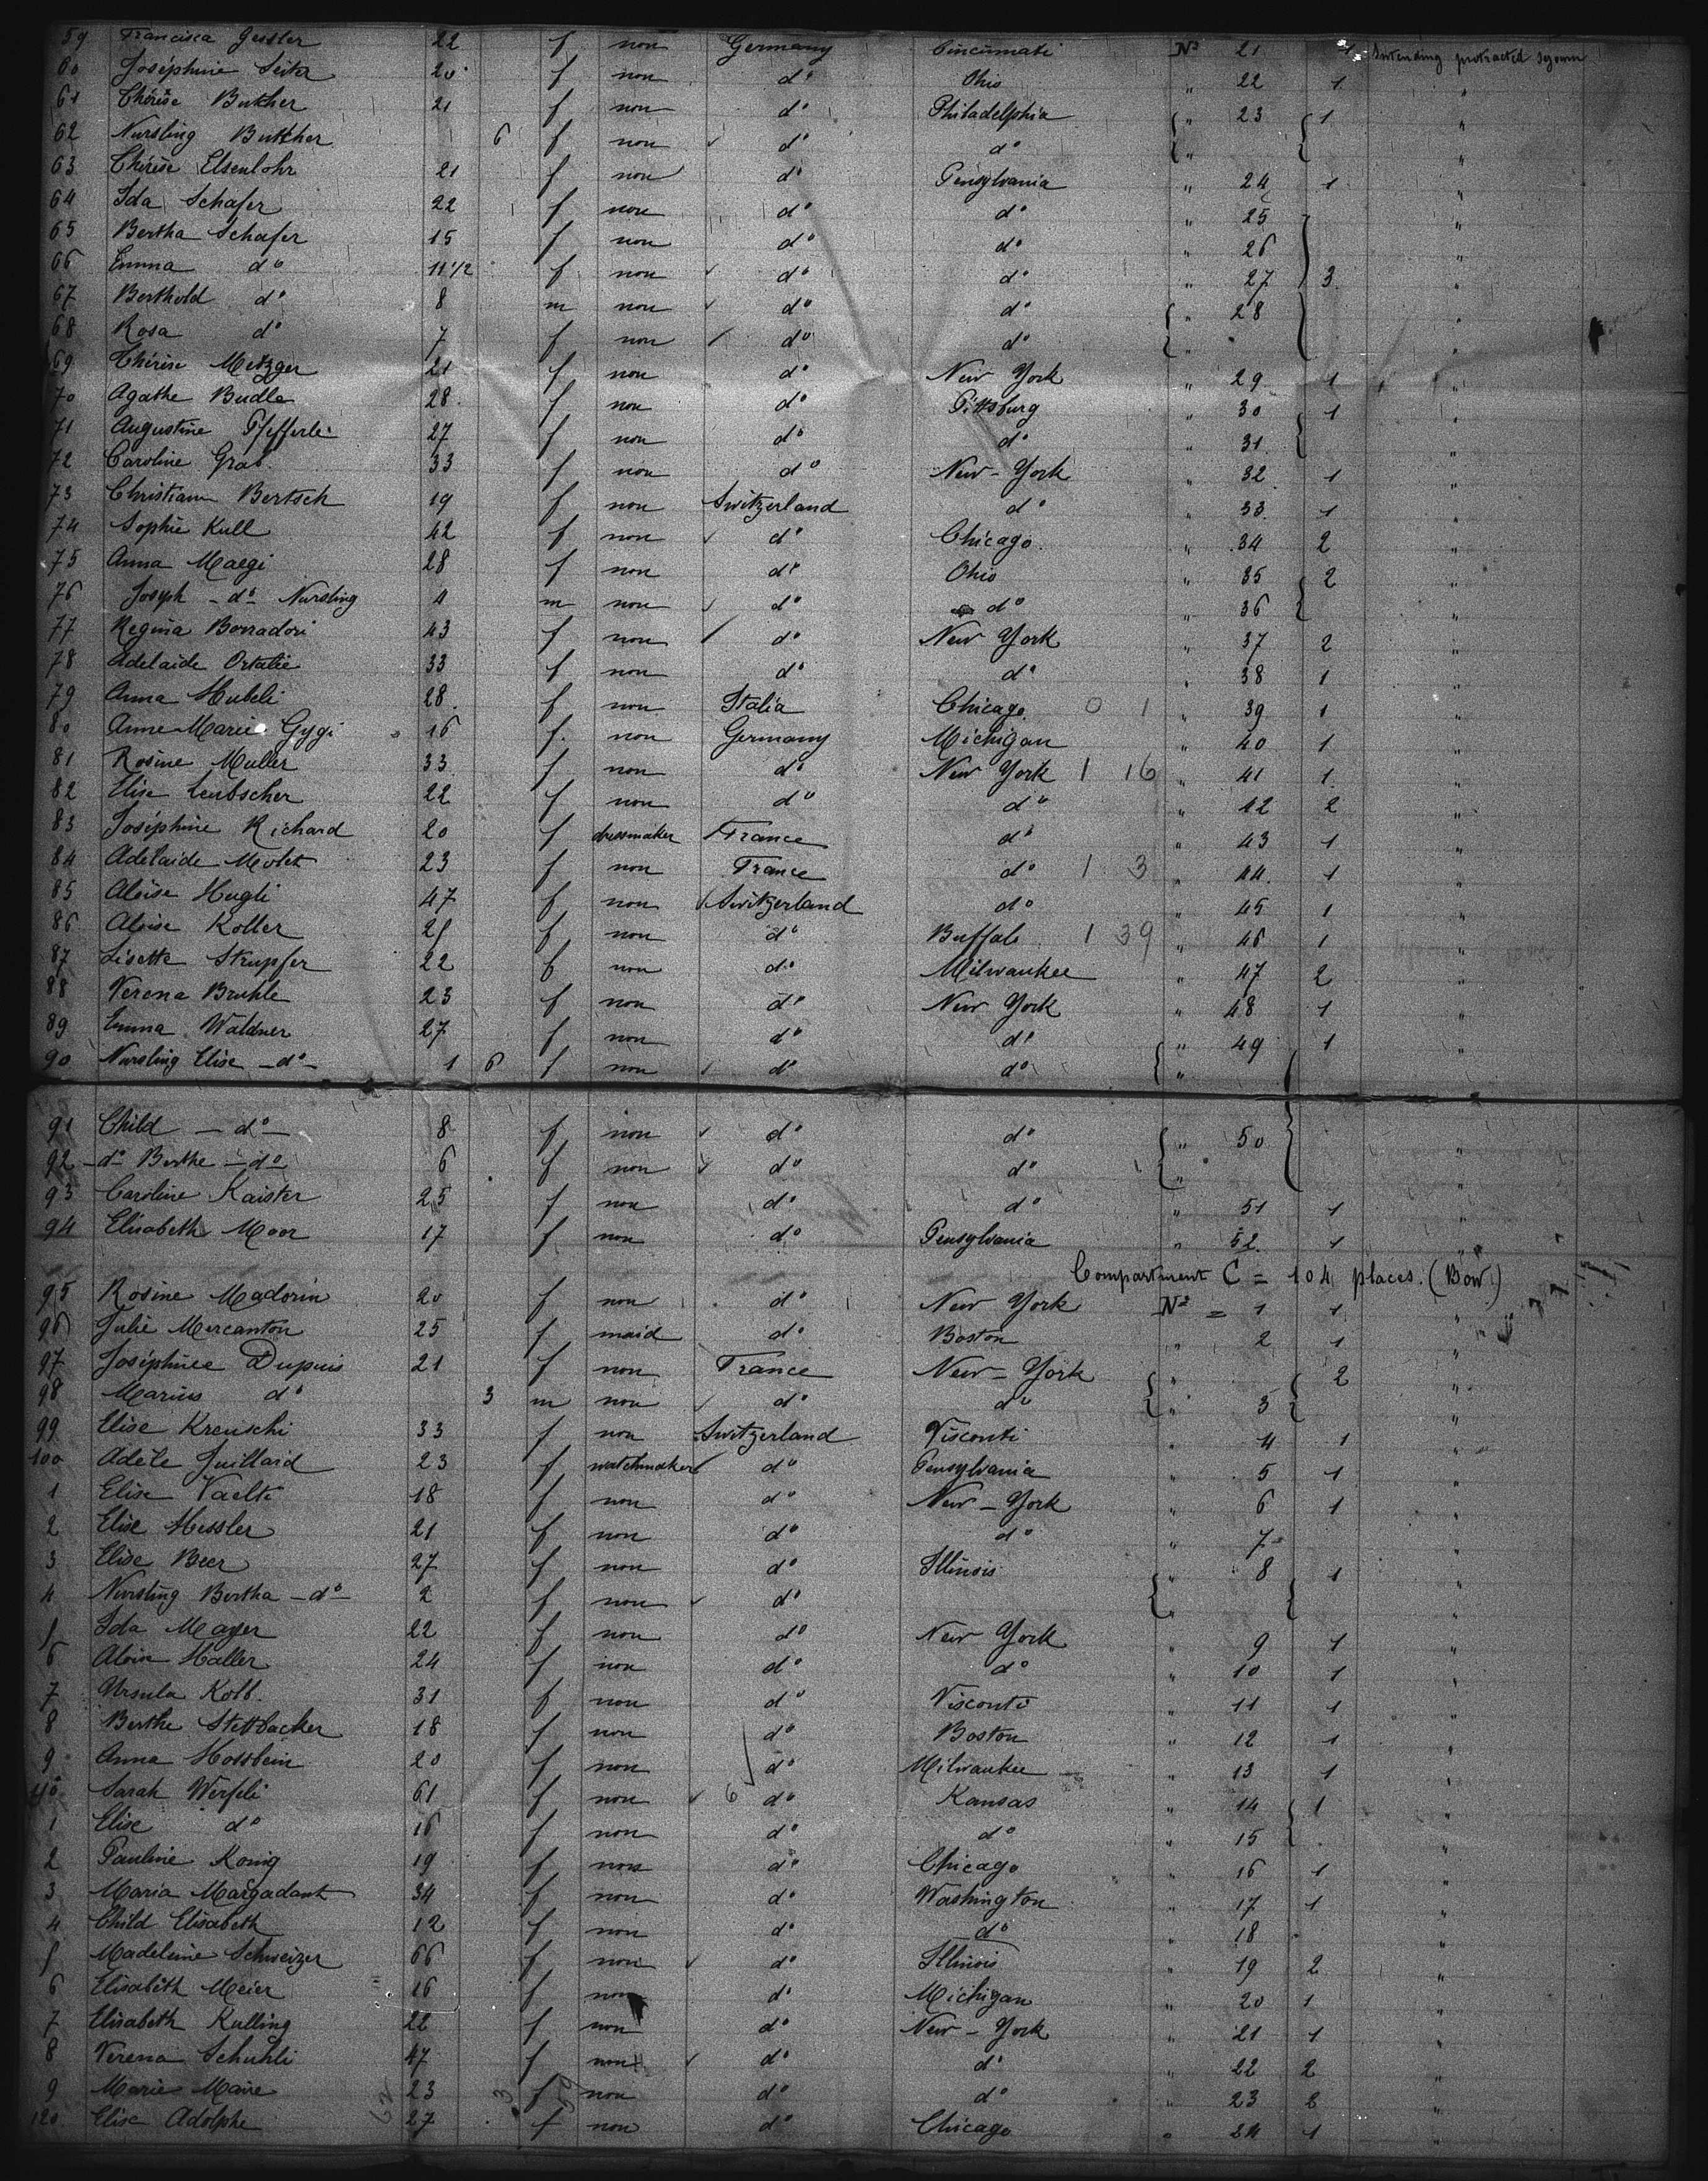 59 Francisca Gessler 22 f non Germany Cincinnati No 21 1 Intending protracted sejourn
60 Joséphine Seitz 20 f non do Ohio " 22 1 "
61 Thérèse Butcher 21 f non do Philadelphia " 23 1 "
62 Nursling Butcher 6 f non do do " "
63 Thérèse Elsenlohr 21 f non do Pensylvania " 24 1 "
64 Ida Schafer 22 f non do do " 25 "
65 Bertha Schafer 15 f non do do " 26 "
66 Emma do 11 1/2 f non do do " 27 3 "
67 Berthold do 8 m non do do " 28 "
68 Rosa do 7 f non do do " "
69 Thérèse Metzger 21 f non do New York " 29 1 "
70 Agathe Budle 28 f non do Pittsburg " 30 1 "
71 Augustine Pfefferle 27 f non do do " 31 "
72 Caroline Grab 33 f non do New-York " 32 1 "
73 Christiann Bertsch 19 f non Switzerland do " 33 1 "
74 Sophie Kull 42 f non do Chicago " 34 2 "
75 Anna Maegi 28 f non do Ohio " 35 2 "
76 Joseph -do- Nursling 4 m non do do " 36 "
77 Regina Borradori 43 f non do New York " 37 2 "
78 Adelaide Ortalie 33 f non do do " 38 1 "
79 Anna Hubeli 28 f non Italia Chicago 0 1 " 39 1 "
80 Anne-Marie Gygi 16 f non Germany Michigan " 40 1 "
81 Rosine Muller 33 f non do New York 1 16 " 41 1 "
82 Elise Leubscher 22 f non do do " 42 2 "
83 Joséphine Richard 20 f dressmaker France do " 43 1 "
84 Adelaide Molet 23 f non France do 1 3 " 44 1 "
85 Aloïse Hugli 47 f non Switzerland do " 45 1 "
86 Aloise Koller 25 f non do Buffalo 1 39 " 46 1 "
87 Lisette Strupfer 22 f non do Milwaukee " 47 2 "
88 Verena Bruhle 23 f non do New York " 48 1 "
89 Emma Waldner 27 f non do do " 49 1 "
90 Nursling Elise -do- 1 6 f non do do "
91 Child -do- 8 f non do do " 50 "
92 -do- Berthe -do- 6 f non do do " "
93 Caroline Kaister 25 f non do do " 51 1 "
94 Elisabeth Moor 17 f non do Pensylvania " 52 1 "
Compartment C = 104 places. (Bow.)
95 Rosine Madorin 20 f non do New York No = 1 1 "
96 Julie Mercanton 25 f maid do Boston " 2 1 "
97 Joséphine Dupuis 21 f non France New-York " 2 "
98 Marius do 3 m non do do " 3 "
99 Elise Kreuschi 33 f non Switzerland Visconti " 4 1 "
100 Adèle Juillard 23 f watchmaker do Pensylvania " 5 1 "
1 Elise Vaelti 18 f non do New-York " 6 1 "
2 Elise Hessler 21 f non do do " 7 "
3 Elise Beer 27 f non do Illinois " 8 1 "
4 Nursling Bertha -do- 2 f non do " "
5 Ida Mayer 22 f non do New York " 9 1 "
6 Aloin Haller 24 f non do do " 10 1 "
7 Ursula Kolb 31 f non do Visconti " 11 1 "
8 Berthe Stettbacker 18 f non do Boston " 12 1 "
9 Anna Hossbein 20 f non do Milwaukee " 13 1 "
110 Sarah Werfeli 61 f non 6 do Kansas " 14 1 "
1 Elise do 16 f non do do " 15 "
2 Pauline Konig 19 f non do Chicago " 16 1 "
3 Maria Margadant 34 f non do Washington " 17 1 "
4 Child Elisabeth 12 f non do do " 18 "
5 Madeleine Schweizer 66 f non do Illinois " 19 2 "
6 Elisabeth Meier 16 f non do Michigan " 20 1 "
7 Elisabeth Kulling 22 f non do New-York " 21 1 "
8 Verena Schuhli 47 f non do do " 22 2 "
9 Marie Maire 23 f non do do " 23 2 "
120 Elise Adolphe 27 f non do Chicago " 24 1 "